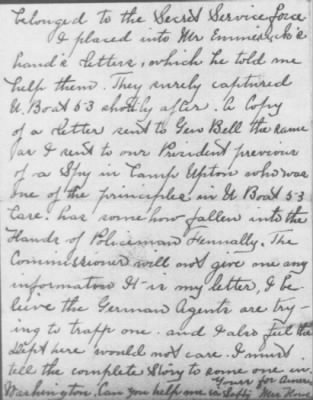 belonged to the Secret Service force
I placed into Mr
hand's letters, which he told me
help them. They surely captured
U. Boat 53 shortly after. A Copy
of a letter sent to Gen Bell the same
as I sent to our President previous
of a Spy in Camp Upton who was
one of the principles in U Boat 53
Case, has some how fallen into the
Hands of Policeman Fennally. The
Commissioner will not give one any
information It is my letter, I be-
leive the German Agents are try-
ing to trapp one. and I also feel the
Dept here would not care. I must
tell the complete story to some one in
Washington. Can you help me in
Yours for America
Mrs